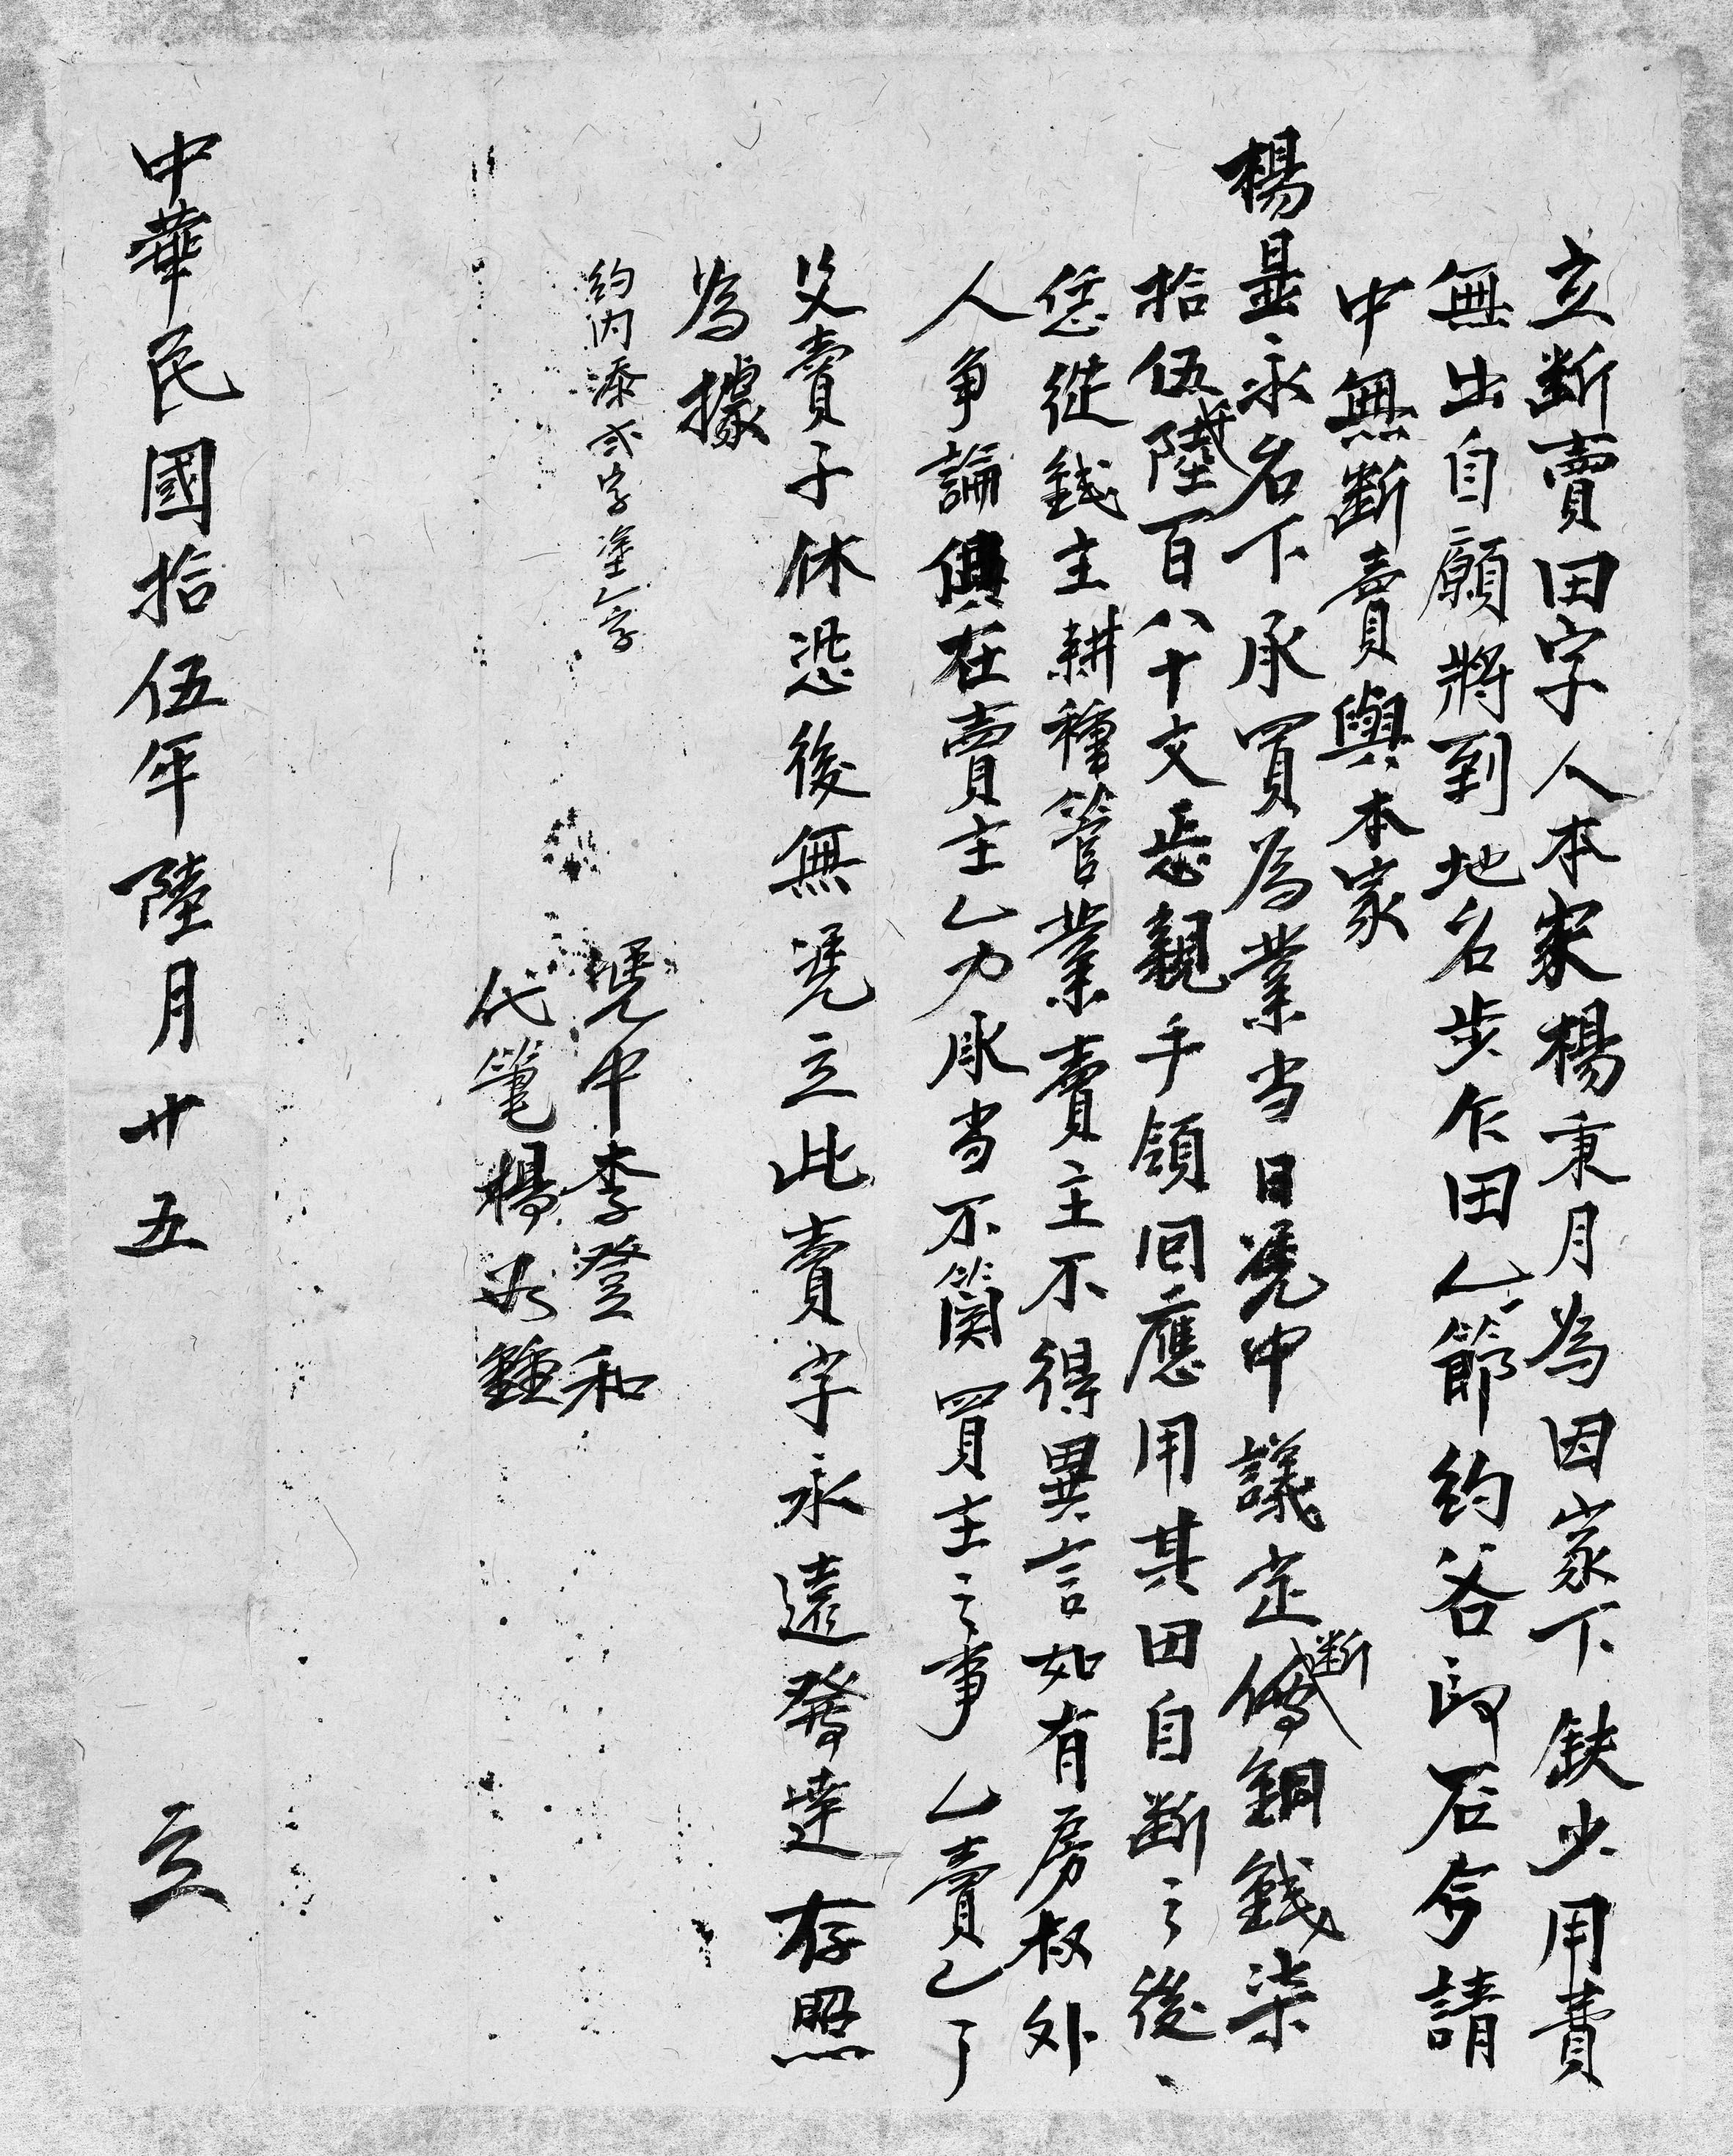 立斷賣田字人本家楊秉月為因家下缺少用費
無出自願將到地名步乍田乙節約谷四石今請
中無斷賣與本家
楊显永名下承買為業当日凴中議定斷價銅錢柒
拾伍千陸百八十文恁親手領回應用其田自斷之後、
恁從錢主耕種管業賣主不得異言如有房叔外
人爭論俱在賣主乙力承当不関買主之事乙賣乙了
父賣子休恐後無凴立此賣字永遠發達存照
為據
約内添弍字塗乙字
凴中李登和
代筆楊鍾
中華民國拾伍年陸月廿五 立